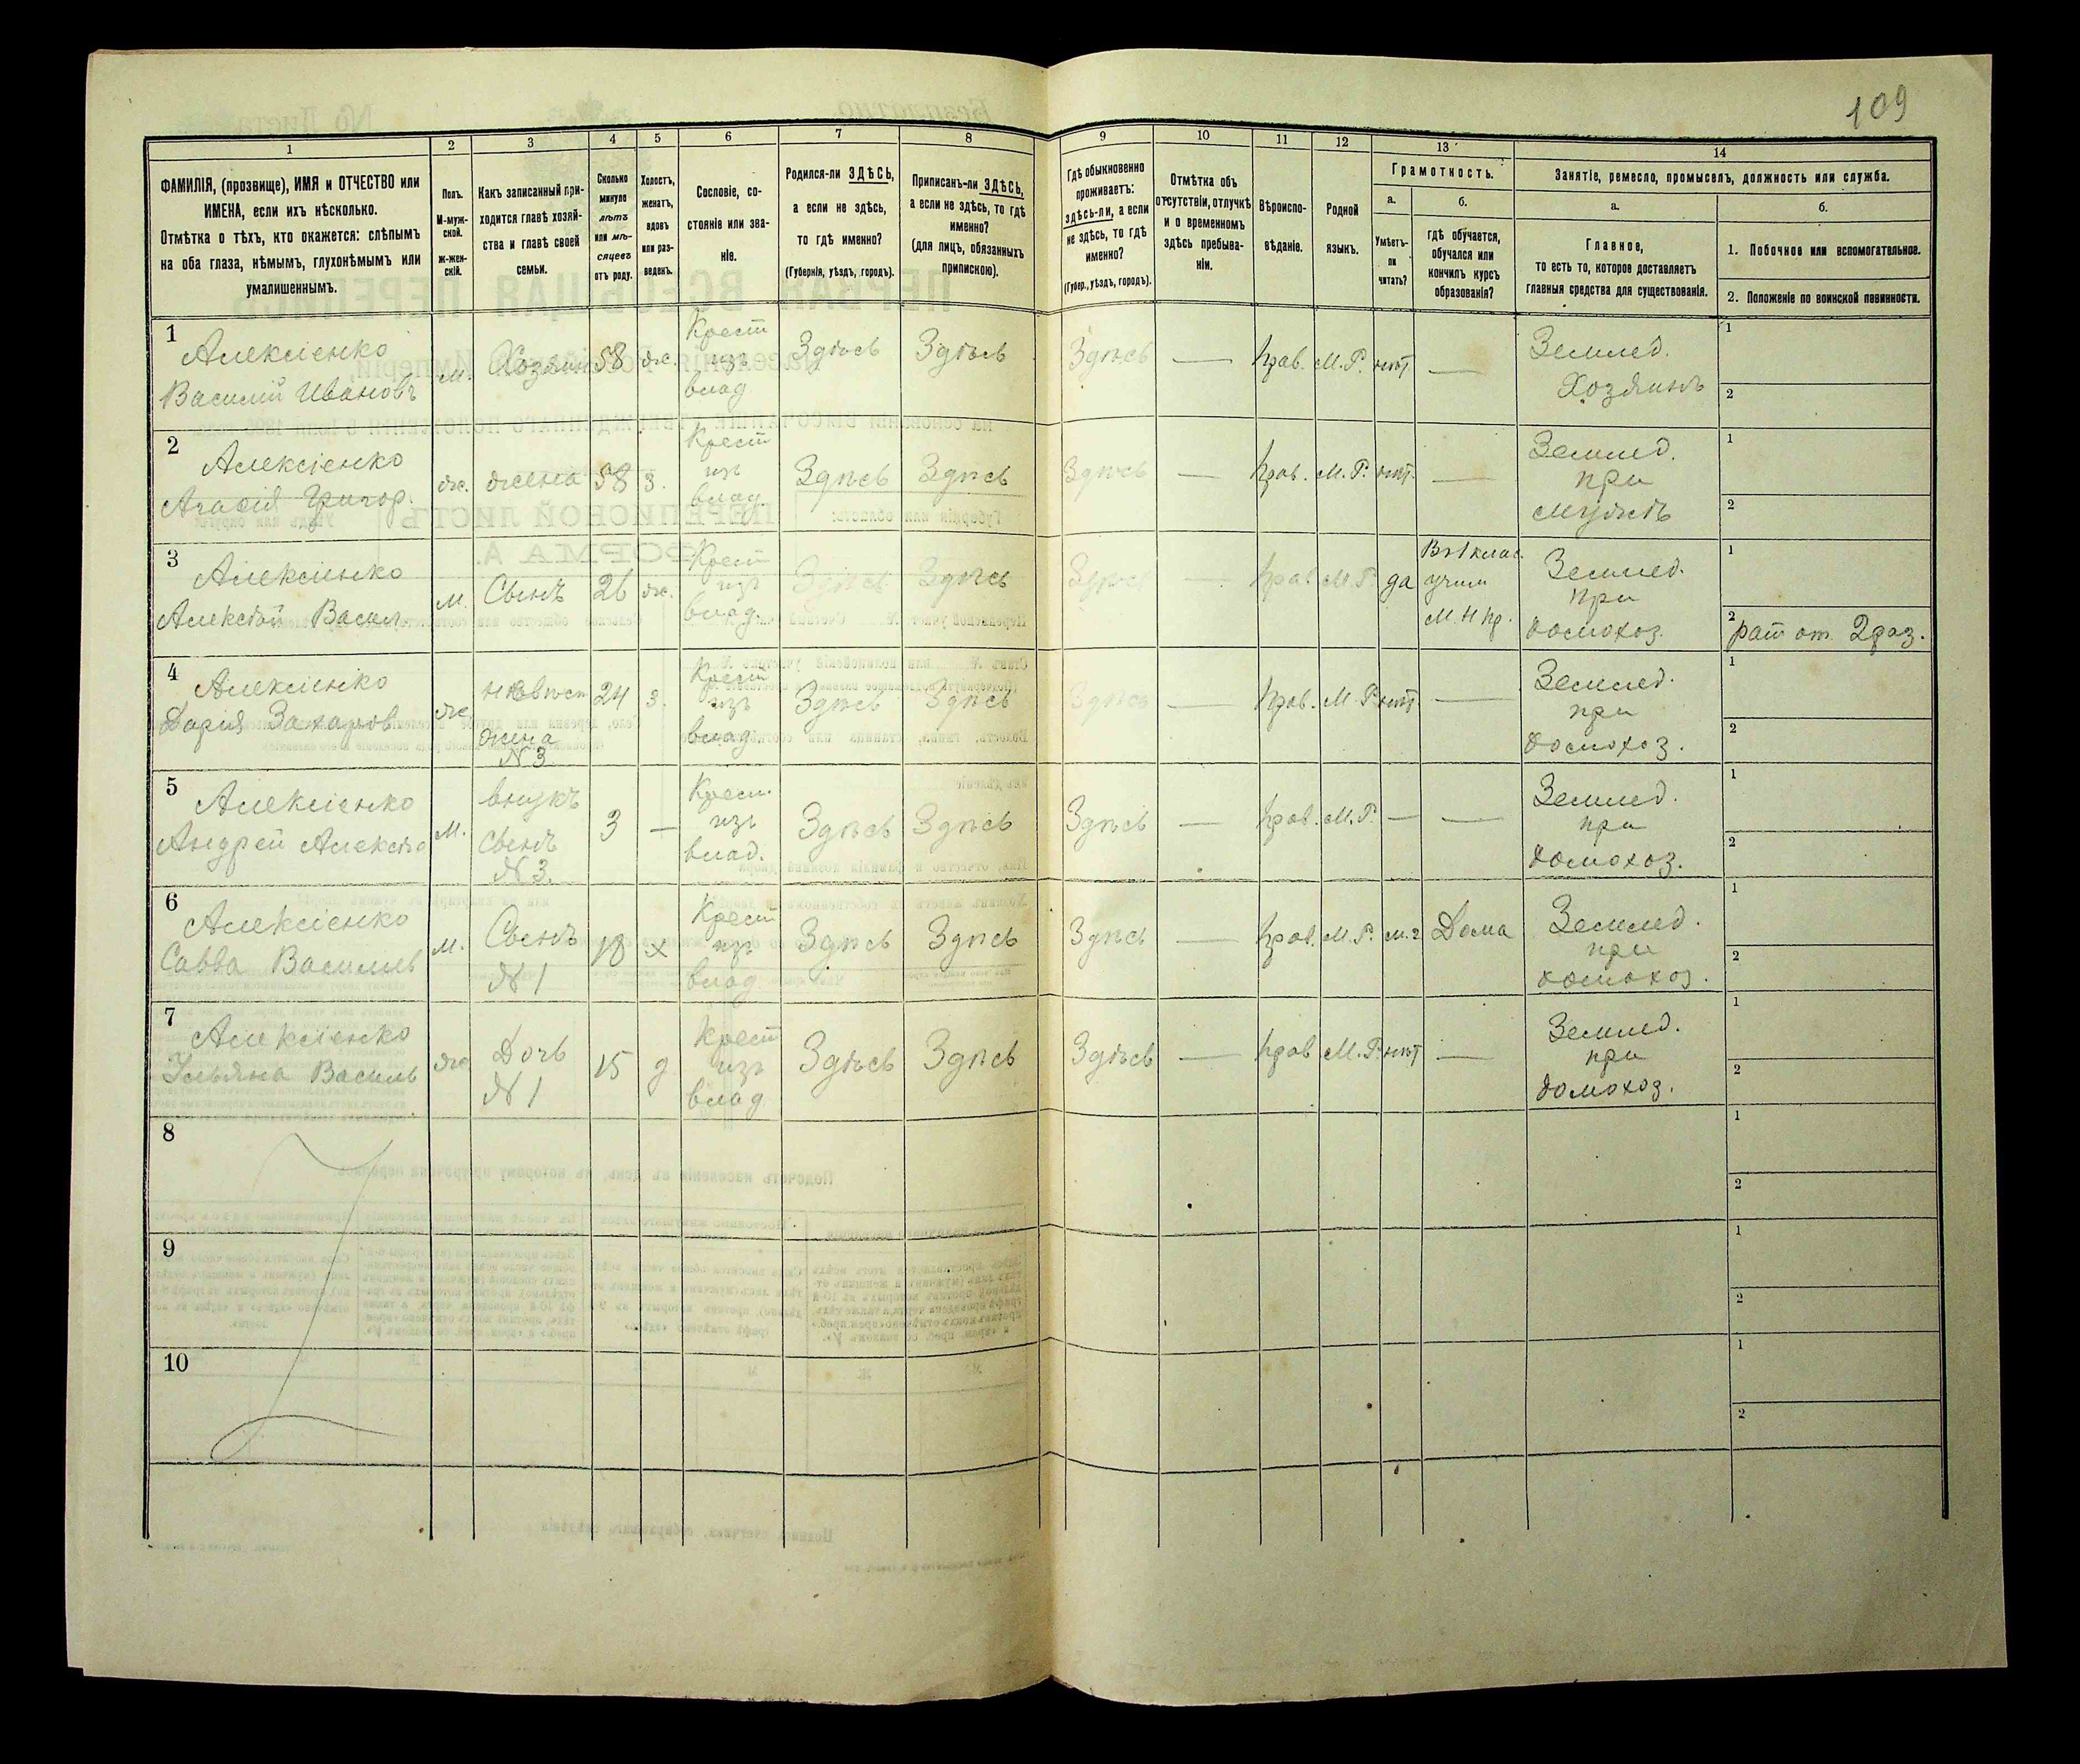 109
1
2
3
4
5
6
7
8
9
10
11
12
13
14
ФАМИЛІЯ, (прозвище), ИМЯ и ОТЧЕСТВО или
ИМЕНА, если ихъ нѣсколько.
Отмѣтка о тѣхъ, кто окажется: слѣпымъ
на оба глаза, нѣмымъ, глухонѣмымъ или
умалишеннымъ.
Полъ.
М-муж-
ской.
ж-жен-
скій.
Какъ записанный при-
ходится главѣ хозяй-
ства и главѣ своей
семьи.
Сколько
минуло
лѣтъ
или мѣ-
сяцевъ
отъ роду.
Холостъ,
женатъ,
вдовъ
или раз-
веденъ.
Сословіе, со-
стояніе или зва-
ніе.
Родился-ли ЗДѢСЬ,
а если не здѣсь,
то гдѣ именно?
(Губернія, уѣздъ, городъ).
Приписанъ-ли ЗДѢСЬ,
а если не здѣсь, то гдѣ
именно?
(для лицъ, обязанныхъ
припискою).
Гдѣ обыкновенно
проживаетъ:
здѣсь-ли, а если
не здѣсь, то гдѣ
именно?
(Губер., уѣздъ, городъ).
Отмѣтка объ
отсутствіи, отлучкѣ
и о временномъ
здѣсь пребыва-
ніи.
Вѣроиспо-
вѣданіе.
Родной
языкъ.
Грамотность.
а.
б.
Умѣетъ-
ли
читать?
гдѣ обучается,
обучался или
кончилъ курсъ
образованія?
Занятіе, ремесло, промыселъ, должность или служба.
а.
б.
Главное,
то есть то, которое доставляетъ
главныя средства для существованія.
1. Побочное или вспомогательное.
2. Положеніе по воинской повинности.
1
Алексіенко
Василій Ивановъ
м.
Хозяин
58
ж.
Крест
изъ
влад
Здѣсь
Здѣсь
Здѣсь
—
прав.
М.Р.
нѣт
—
Землед.
Хозяинъ
1
2
2
Алексіенко
Агафія Григор.
ж.
жена
58
з.
Крест
изъ
влад
Здѣсь
Здѣсь
Здѣсь
—
прав.
М.Р.
нѣт.
—
Землед.
при
мужѣ
1
2
3
Алексіенко
Алексѣй Васил
м.
Сынъ
26
ж.
Крест
изъ
влад.
Здѣсь
Здѣсь
Здѣсь
—
прав
М.Р.
да
Въ 1 клас.
учил
М.Н.пр.
Землед.
при
домохоз.
1
2
рат от. 2 раз.
4
Алексіенко
Дарія Захаров
ж
невѣст
жена
N 3
24
з.
Крест
изъ
влад
Здѣсь
Здѣсь
Здѣсь
—
прав.
М.Р.
нѣт
—
Землед.
при
домохоз.
1
2
5
Алексіенко
Андрей Алексѣе
м.
внукъ
сынъ
N 3.
3
—
Крест.
изъ
влад.
Здѣсь
Здѣсь
Здѣсь
—
прав.
М.Р.
—
—
Землед.
при
домохоз.
1
2
6
Алексіенко
Савва Василіев
м.
Сынъ
N 1
18
х
Крест
изъ
влад
Здѣсь
Здѣсь
Здѣсь
—
прав.
М.Р.
Дома
Землед.
при
домохоз.
1
2
7
Алексіенко
Ульяна Василь
ж
Дочь
N 1
15
д
Крест
изъ
влад
Здѣсь
Здѣсь
Здѣсь
—
прав
М.Р.
нѣт
—
Землед.
при
домохоз.
1
2
8
1
2
9
1
2
10
1
2